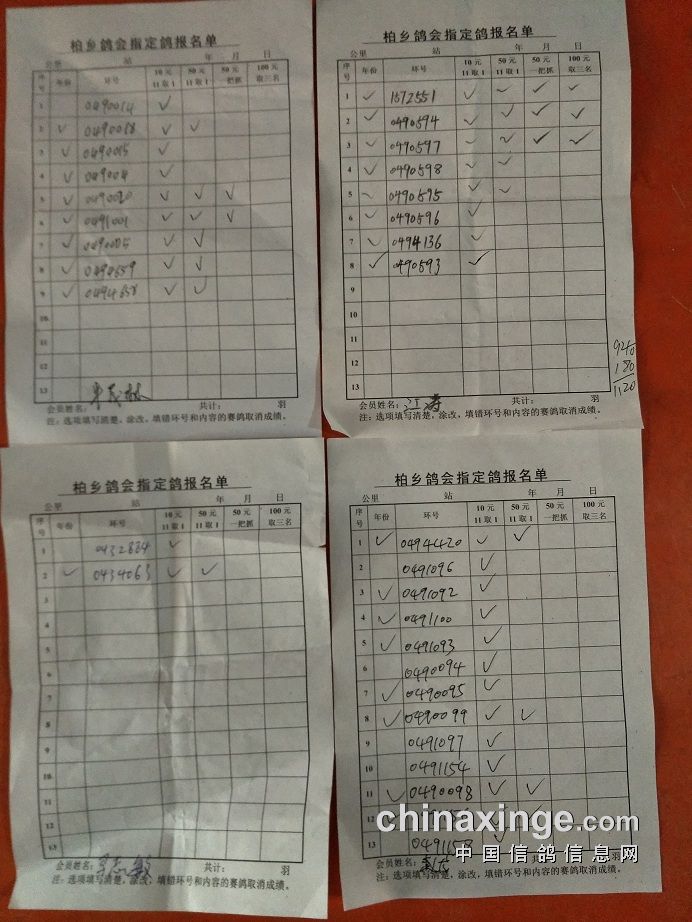 柏乡鸽会指定鸽报名单
公里 站 年 月 日
序号 年份 环号 10元11取1 50元11取1 50元一把抓 100元取三名
1 0490014 ✓
2 ✓ 0490018 ✓ ✓
3 ✓ 0490015 ✓
4 ✓ 049004 ✓
5 ✓ 0490020 ✓ ✓ ✓
6 ✓ 0491001 ✓ ✓ ✓
7 ✓ ✓ ✓
8 ✓ ✓ ✓
9 ✓ ✓ ✓
10
11
12
13
会员姓名: 共计: 羽
注:选项填写清楚,涂改,填错环号和内容的赛鸽取消成绩。
柏乡鸽会指定鸽报名单
公里 站 年 月 日
序号 年份 环号 10元11取1 50元11取1 50元一把抓 100元取三名
1 ✓ 1572551 ✓ ✓ ✓ ✓
2 ✓ 0490594 ✓ ✓ ✓ ✓
3 ✓ 0490597 ✓ ✓ ✓ ✓
4 ✓ 0490598 ✓ ✓
5 ✓ 0490595 ✓ ✓
6 ✓ 0490596 ✓
7 ✓ 0494136 ✓
8 ✓ 0490593 ✓
9
10
11
12
13
940
180
1120
会员姓名: 共计: 羽
注:选项填写清楚,涂改,填错环号和内容的赛鸽取消成绩。
柏乡鸽会指定鸽报名单
公里 站 年 月 日
序号 年份 环号 10元11取1 50元11取1 50元一把抓 100元取三名
1 0432884 ✓
2 ✓ 0434063 ✓ ✓
3
4
5
6
7
8
9
10
11
12
13
会员姓名: 共计: 羽
注:选项填写清楚,涂改,填错环号和内容的赛鸽取消成绩。
柏乡鸽会指定鸽报名单
公里 站 年 月 日
序号 年份 环号 10元11取1 50元11取1 50元一把抓 100元取三名
1 ✓ 0494420 ✓ ✓
2 0491096 ✓
3 ✓ 0491092 ✓
4 ✓ 0491100 ✓
5 ✓ 0491093 ✓
6 0490094 ✓
7 ✓ 0490095 ✓
8 ✓ 0490099 ✓ ✓
9 0491097 ✓
10 0491154 ✓
11 ✓ 0490098 ✓ ✓
12
13 0491158 ✓
会员姓名: 共计: 羽
注:选项填写清楚,涂改,填错环号和内容的赛鸽取消成绩。
chinaxinge.com
中国信鸽信息网